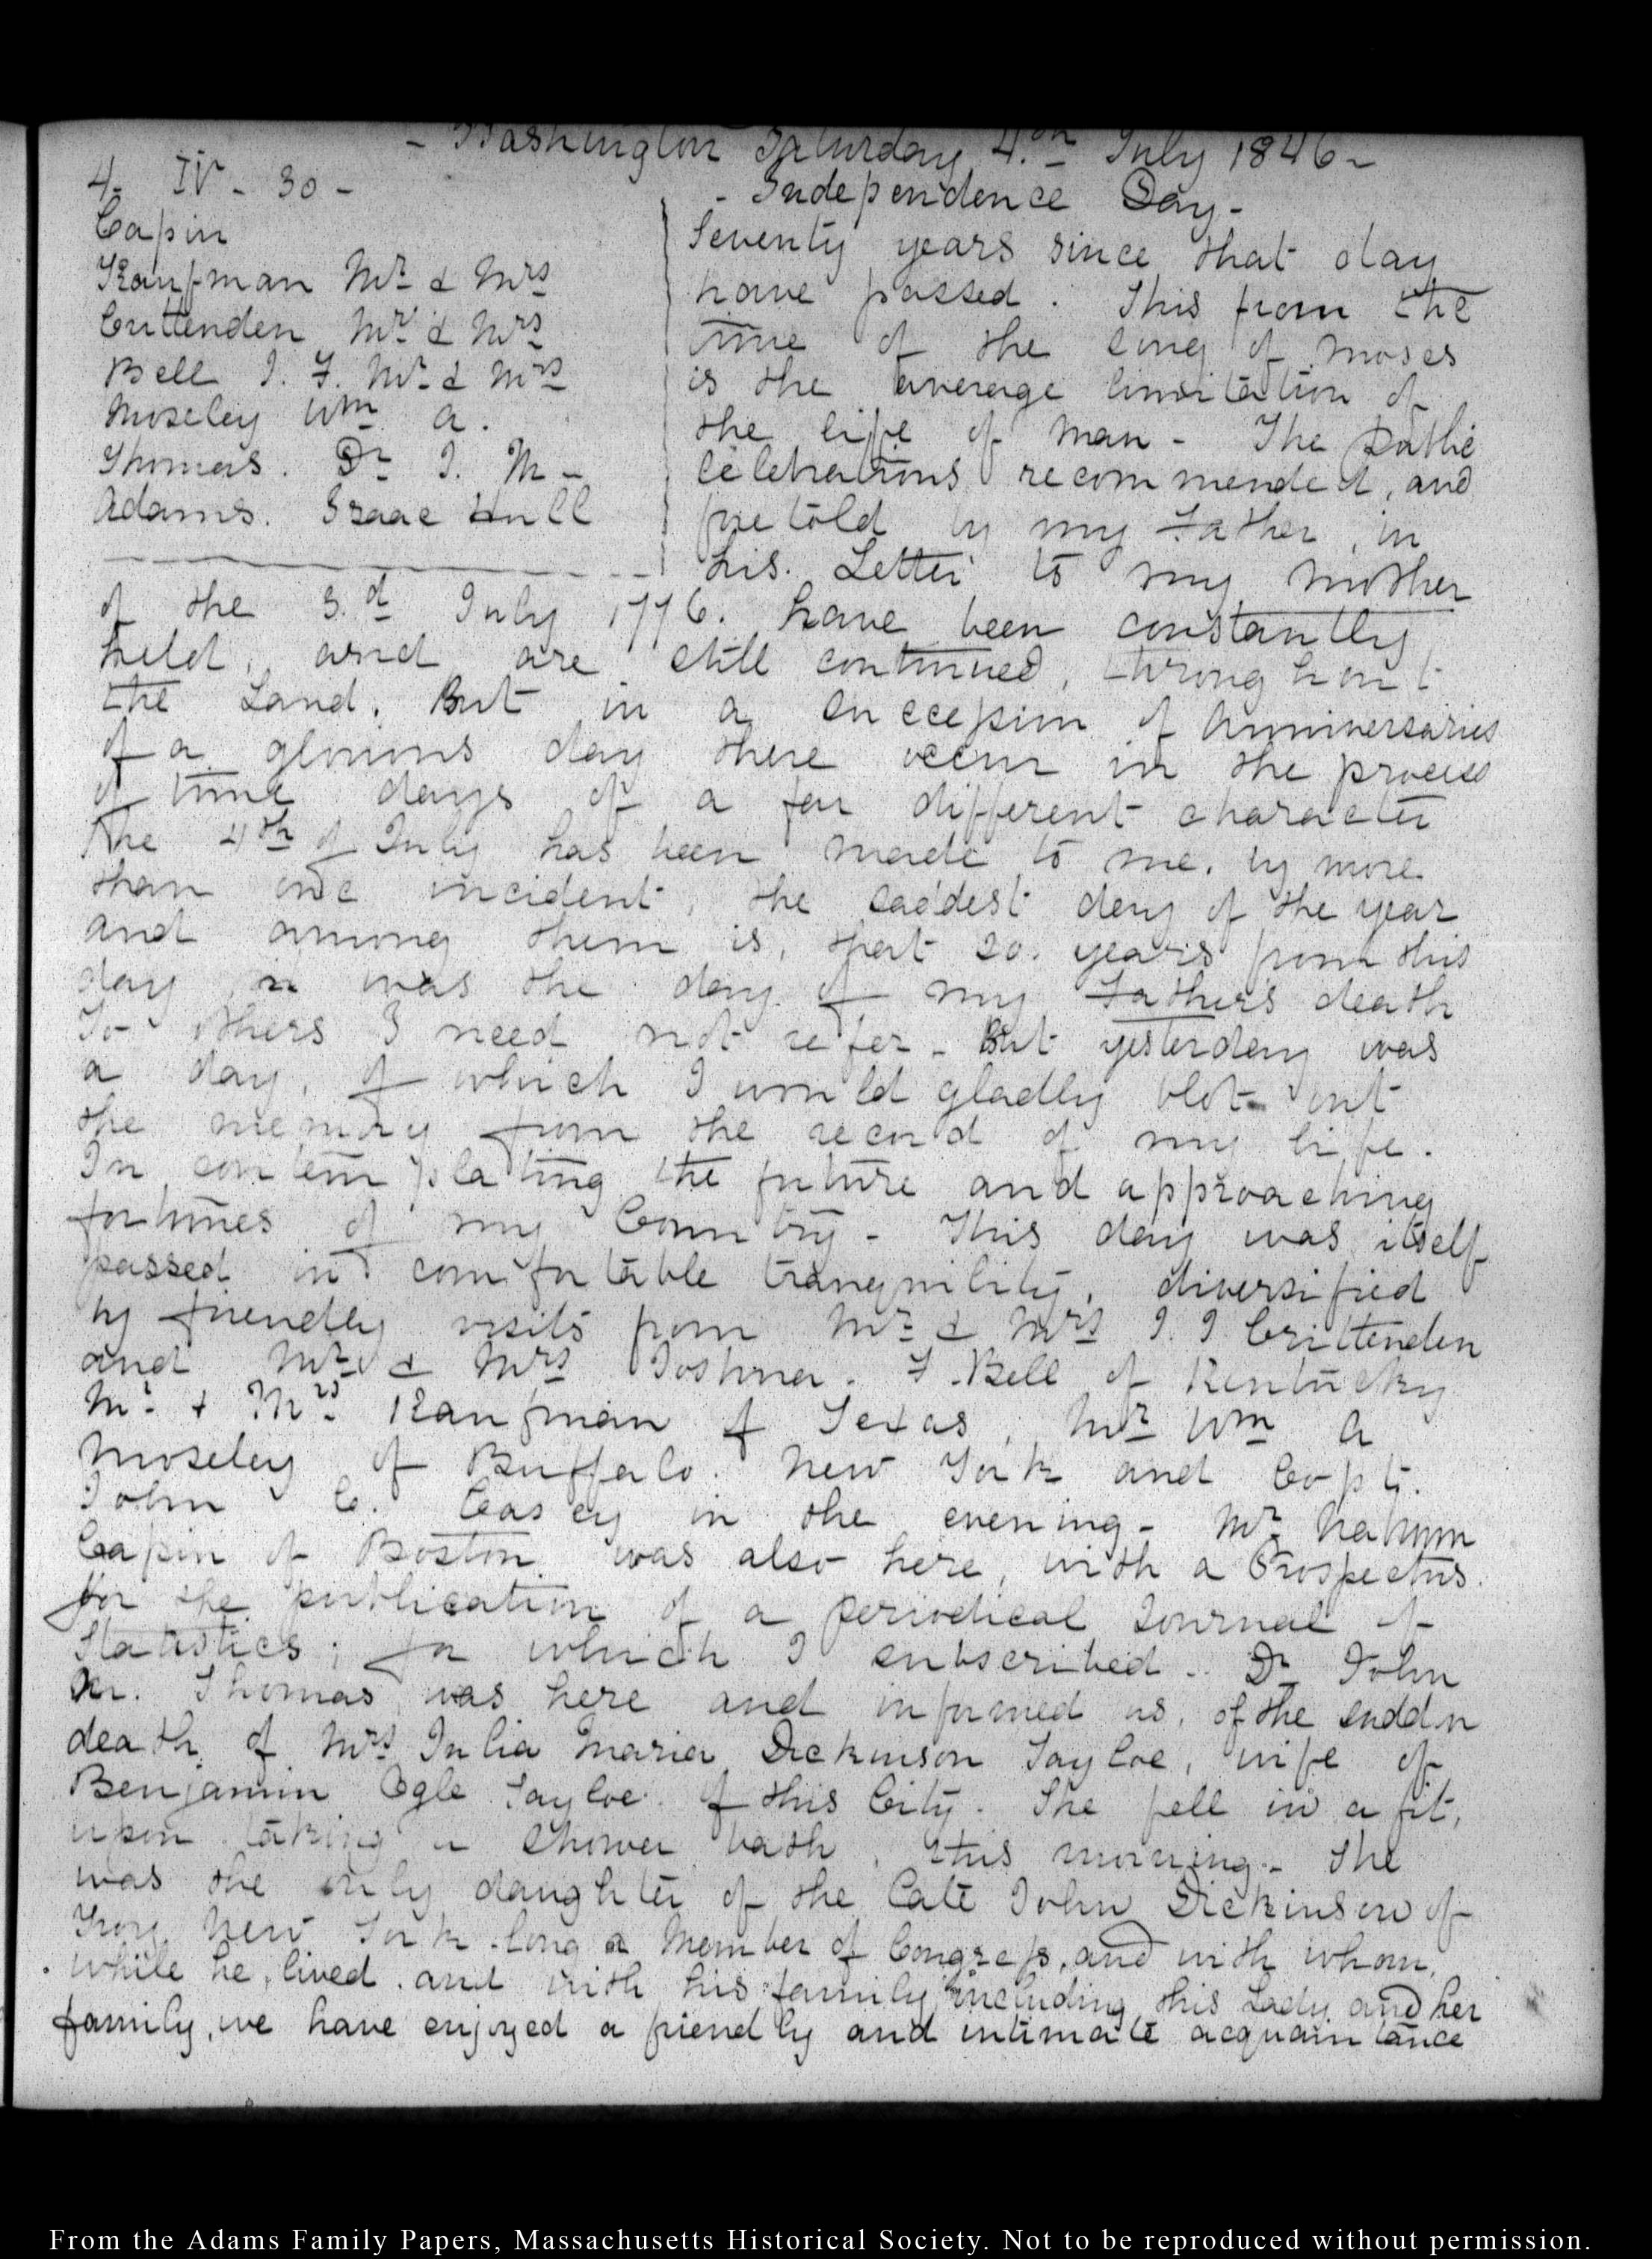 - Washington Saturday 4.th July 1846 -
4. IV. 30 -
Capin
Kaufman Mr & Mrs
Crittenden Mr & Mrs
Bell J. F. Mr & Mrs
Moseley Wm A.
Thomas. Dr J. M -
Adams. Isaac Hull
- Independence Day -
Seventy years since that day
have passed. This from the
time of the song of Moses
is the average limitation of
the life of man - The public
celebrations recommended, and
foretold by my Father, in
his Letter to my Mother
of the 3.d July 1776. have been constantly
held, and are still continued, throughout
the Land. But in a succession of Anniversaries
of a glorious day there occur in the process
of time days of a far different character
The 4th of July has been made to me, by more
than one incident, the saddest day of the year
and among them is, that 20. years from this
day it was the day of my Father's death
To others I need not refer - But yesterday was
a day, of which I would gladly blot out
the memory from the record of my life.
In contemplating the future and approaching
fortunes of my Country - This day was itself
passed in comfortable tranquility, diversified
by friendly visits from Mr & Mrs J. J Crittenden
and Mr & Mrs Joshua. F. Bell of Kentucky
Mr. & Mrs Kaufman of Texas, Mr Wm A
Moseley of Buffalo. New York and Capt.
John C. Casey in the evening - Mr Nahum
Capin of Boston was also here, with a Prospectus
for the publication of a periodical Journal of
Statistics; for which I subscribed - Dr John
M. Thomas was here and informed us, of the sudden
death of Mrs Julia Maria Dickinson Tayloe, wife of
Benjamin Ogle Tayloe. of this City. She fell in a fit,
upon taking a shower bath, this morning - She
was the only daughter of the late John Dickinson of
Troy New York. long a Member of Congress, and with whom,
while he, lived. and with his family including this Lady and her
family, we have enjoyed a friendly and intimate acquaintance
From the Adams Family Papers, Massachusetts Historical Society. Not to be reproduced without permission.